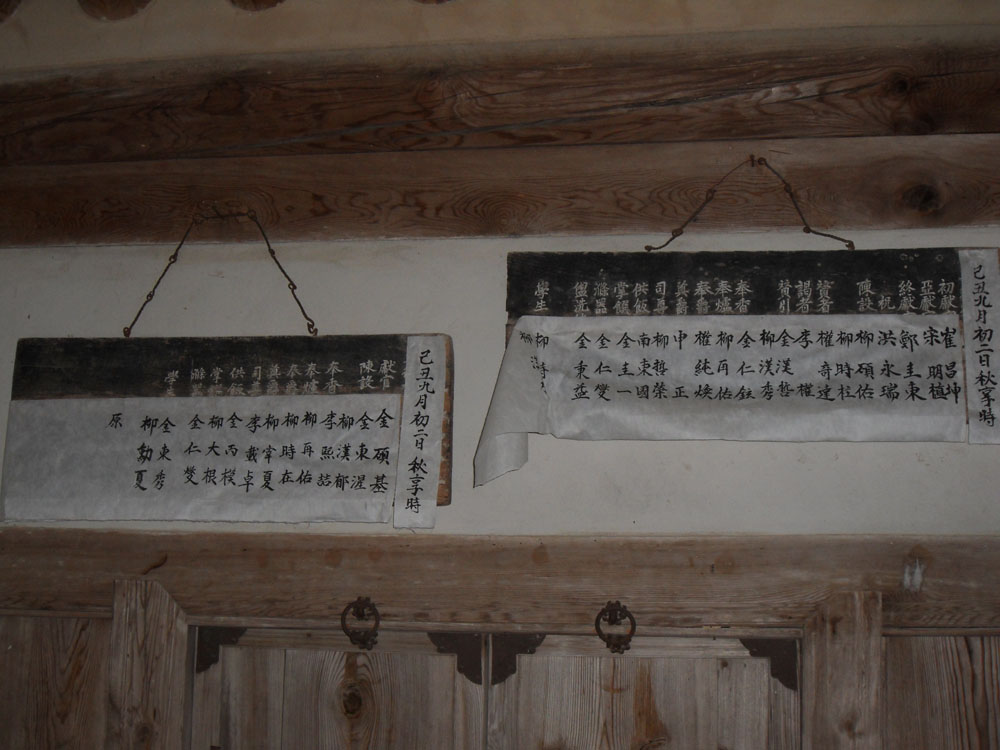 己丑九月初二日秋享時
初獻
亞獻
終獻
祝
陳設
贊者
謁者
贊引
奉香
奉爐
奉爵
司尊
供飯
掌饌
滌器
學生
崔昌坤
宋明植
鄭圭東
洪永瑞
柳碩佑
柳時柱
權奇達
李權
金漢哲
柳漢秀
金仁鉉
柳再佑
權純煥
申正
柳哲榮
南東國
金圭一
金仁燮
金秉益
柳
己丑九月初二日秋享時
獻官
陳設
奉香
奉爐
奉爵
司尊
供飯
掌饌
滌器
學生
金碩基
金東渥
柳漢郁
李熙喆
柳再佑
柳時在
柳宰夏
李載卓
金丙模
柳大根
金仁燮
金東秀
柳勛夏
原